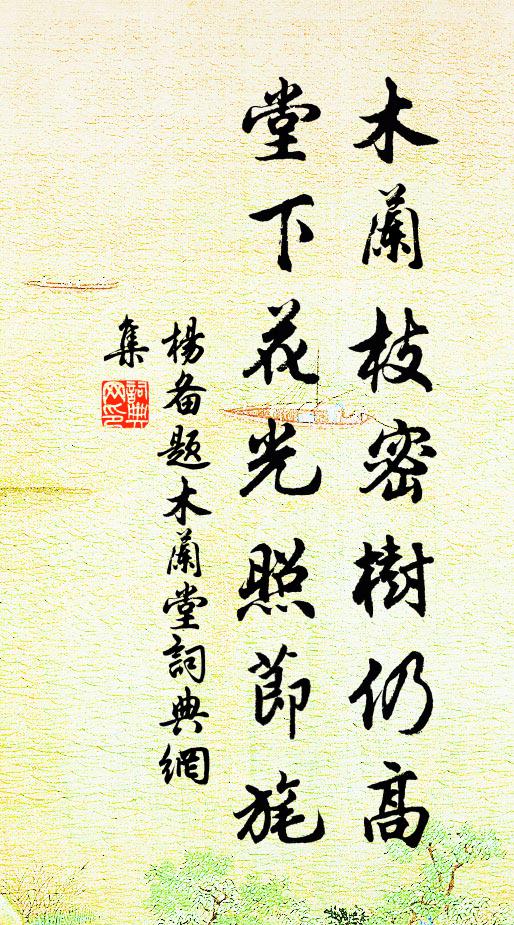 木蘭枝密樹仍高
堂下花光照節旄
楊备題木蘭堂詞典網
集
詞典
网印